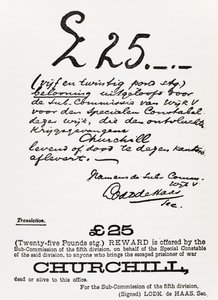 £ 25.—.—
(vijf en twintig pond stg)
belooning uitgeloofd door
de Sub. Commissie van Wijk V
voor den specialen Constabel
dezer wijk, die den ontvluchte
Krijgsgevangene
Churchill
levend of dood te dezen kantore
aflevert.
Namens de Sub. Comm.
Wijk V
Lodk de Haas
Sec.
Translation.
£25
(Twenty-five Pounds stg.) REWARD is offered by the
Sub-Commission of the fifth division, on behalf of the Special Constable
of the said division, to anyone who brings the escaped prisoner of war
CHURCHILL,
dead or alive to this office.
For the Sub-Commission of the fifth division,
(Signed) LODK. de HAAS, Sec.